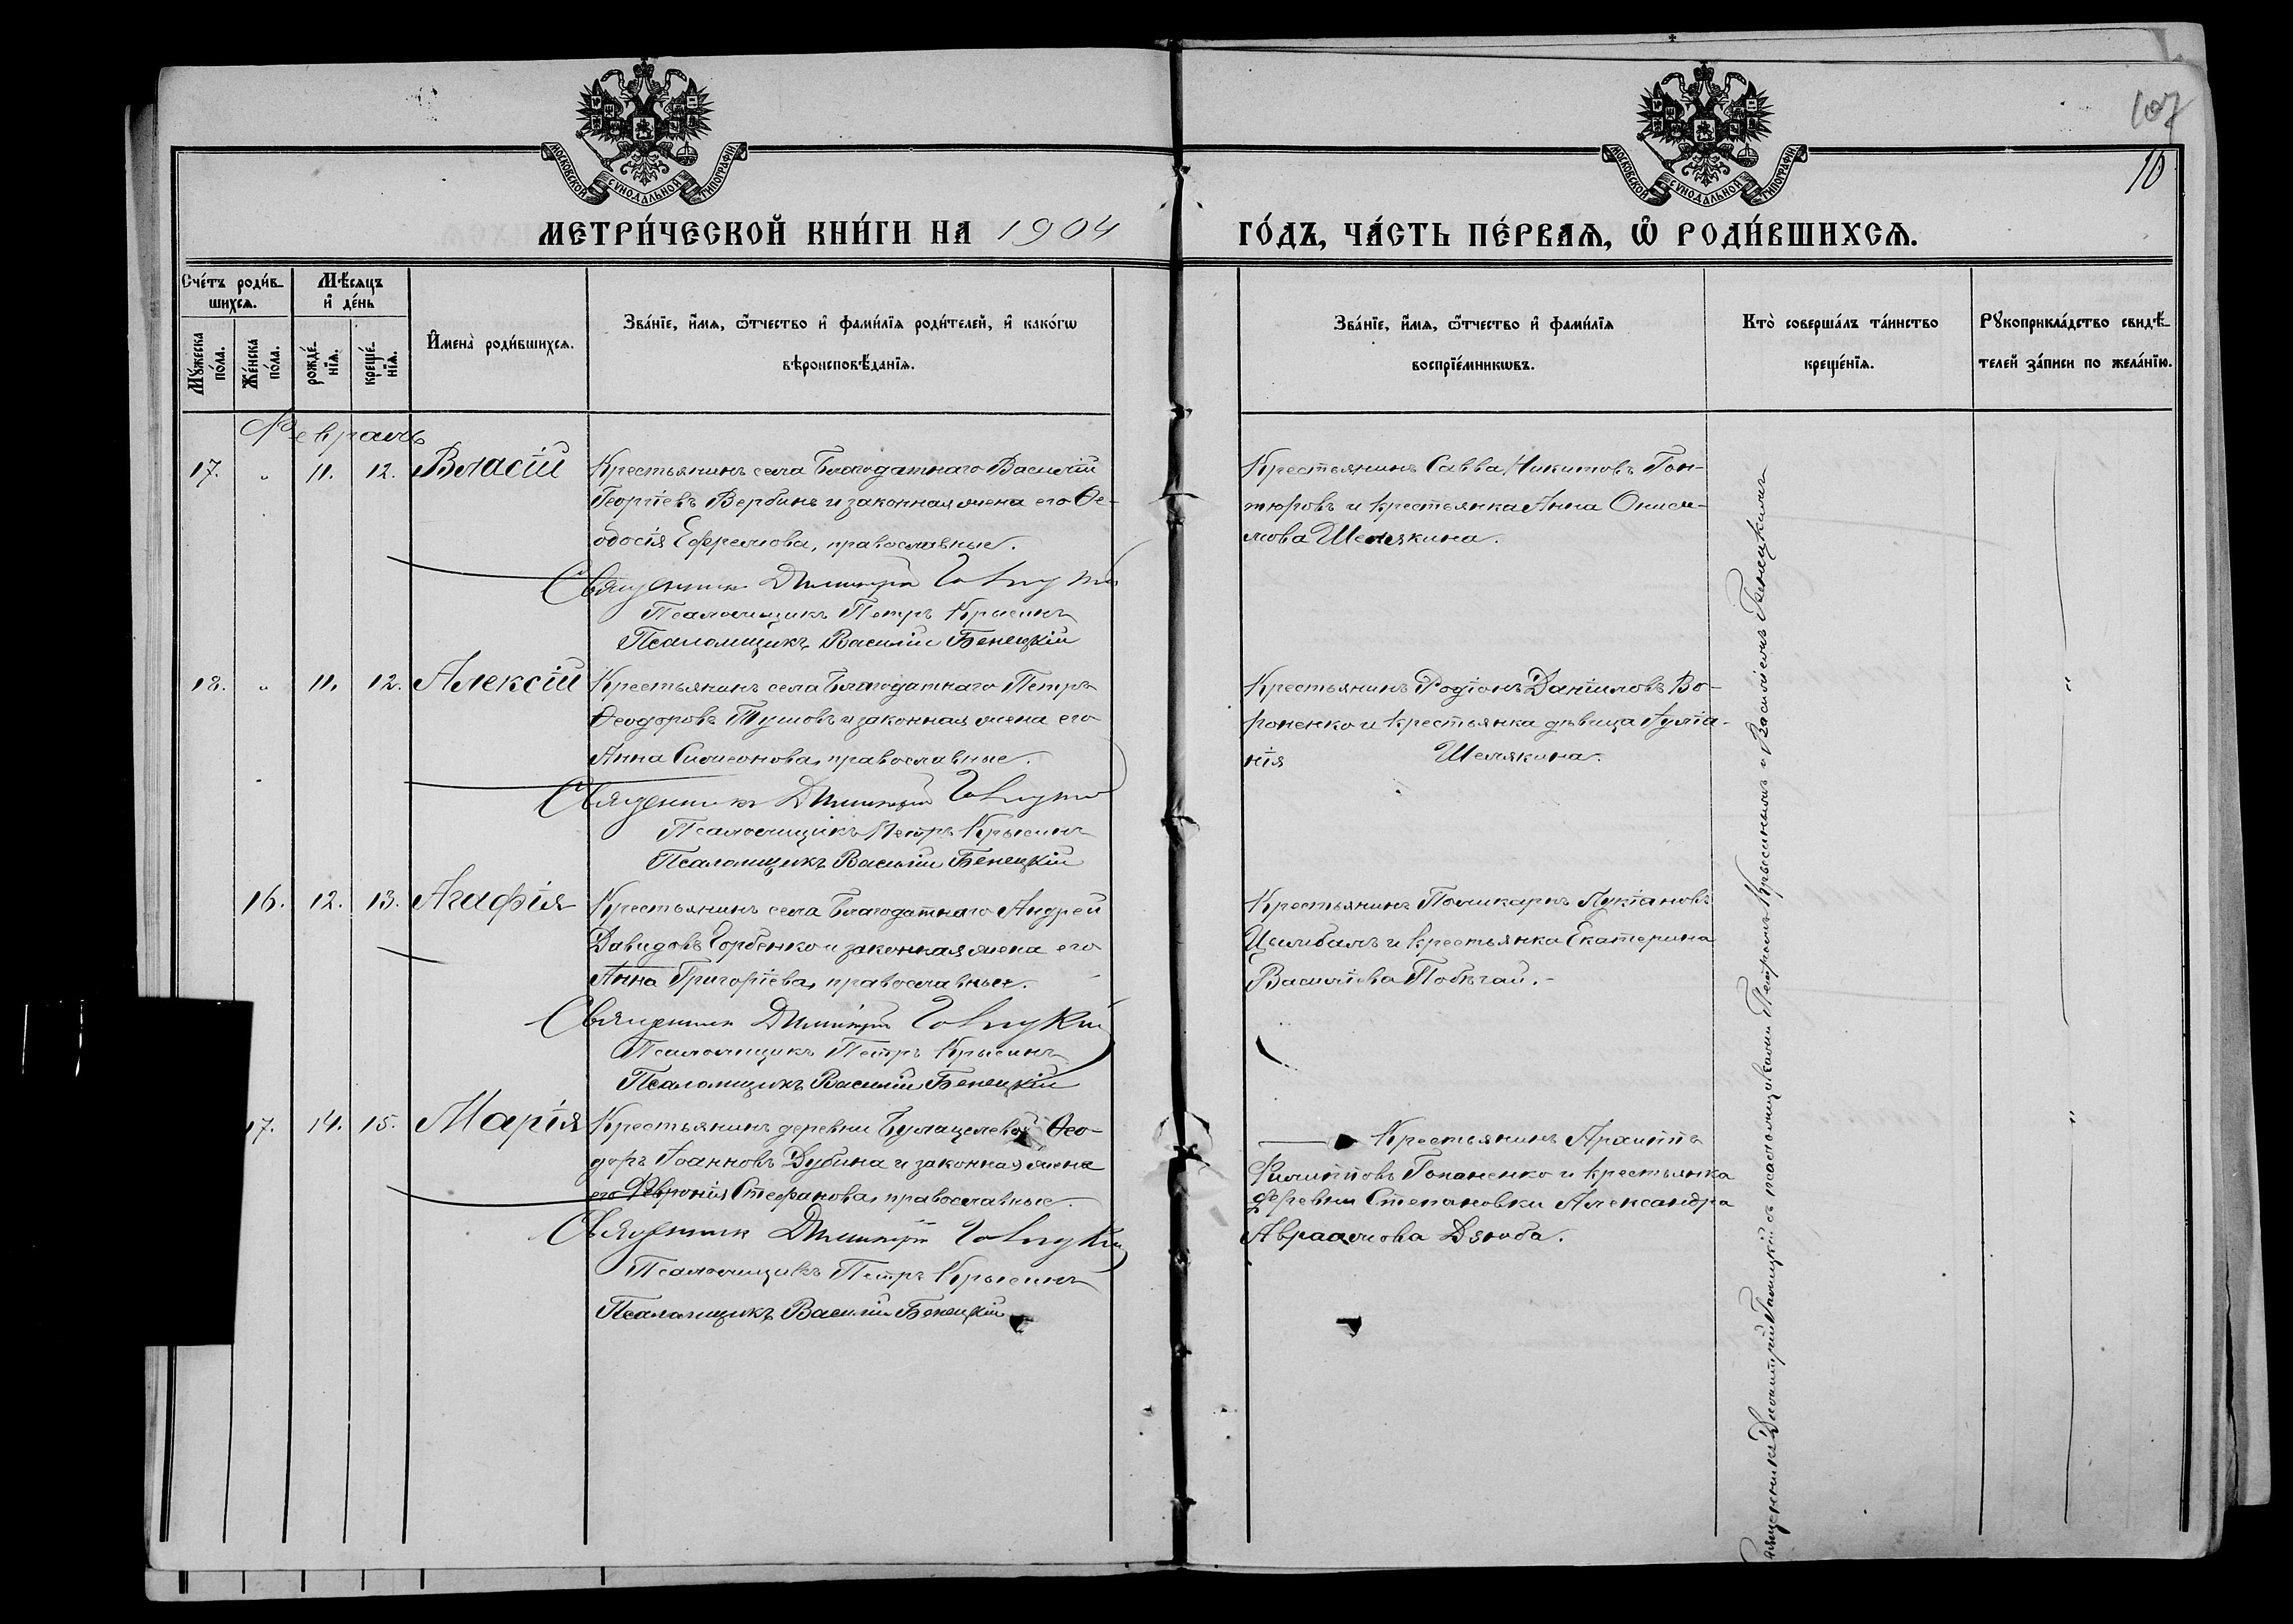 107
10
МОСКОВСКОЙ СУНОДАЛЬНОЙ ТИПОГРАФІИ
МОСКОВСКОЙ СУНОДАЛЬНОЙ ТИПОГРАФІИ
МЕТРИ́ЧЕСКОЙ КНИ́ГИ НА 1904
ГО́ДЪ, ЧА́СТЬ ПЕ́РВАѦ, Ѡ҆ РОДИ́ВШИХСѦ.
Сче́тъ роди́в-
шихсѧ.
Мꙋ́жеска по́ла.
Же́нска по́ла.
Мѣ́сѧцъ
и҆ де́нь
рожде́-
нїѧ.
креще́-
нїѧ.
И҆мена̀ роди́вшихсѧ.
Зва́нїе, и҆́мѧ, ѻ҆́тчество и҆ фами́лїѧ роди́телей, и҆ како́гѡ
вѣроисповѣ́данїѧ.
Зва́нїе, и҆́мѧ, ѻ҆́тчество и҆ фами́лїѧ
воспрїе́мникѡвъ.
Кто̀ соверша́лъ та́инство
креще́нїѧ.
Рꙋкоприкла́дство свидѣ́-
телей за́писи по жела́нїю.
Февраль
17. " 11. 12. Власій
Крестьянинъ села Благодатнаго Василій
Георгіевъ Вербинъ и законная жена его Ѳе-
одосія Ефремова, православные.
Священникъ Димитрій
Псаломщикъ Петръ Крысинъ
Псаломщикъ Василій Бенецкій
Крестьянинъ Савва Никитовъ Гон-
тюровъ и крестьянка АннаОниси-
мова Шелякина.
18. " 11. 12. Алексій
Крестьянинъ села Благодатнаго Петръ
Ѳеодоровъ Тушовъ и законная жена его
Анна Симеонова, православные.
Священникъ Димитрій
Псаломщикъ Петръ Крысинъ
Псаломщикъ Василій Бенецкій
Крестьянинъ Родіонъ Даніиловъ Во-
роненко и крестьянка дѣвица Іуліа-
нія Шелякина.
16. 12. 13. Агафія
Крестьянинъ села Благодатнаго Андрей
Давидовъ Горбенко и законная жена его
Анна Григоріева, православные.
Священникъ Димитрій
Псаломщикъ Петръ Крысинъ
Псаломщикъ Василій Бенецкій
Крестьянинъ Поликарпъ Лукіановъ
Цымбалъ и крестьянка Екатерина
Василіева Побѣгай.
17. 14. 15. Марія
Крестьянинъ деревни Булацелевой Ѳео-
доръ Іоанновъ Дубина и законная жена
его Февронія Стефанова, православные.
Священникъ Димитрій
Псаломщикъ Петръ Крысинъ
Псаломщикъ Василій Бенецкій
Крестьянинъ
Филипповъ Гопаненко и крестьянка
деревни Степановки Александра
Авраамова Дзюба.
Священникъ Димитрій съ псаломщиками Петромъ Крысинымъ и Василіемъ Бенецкимъ